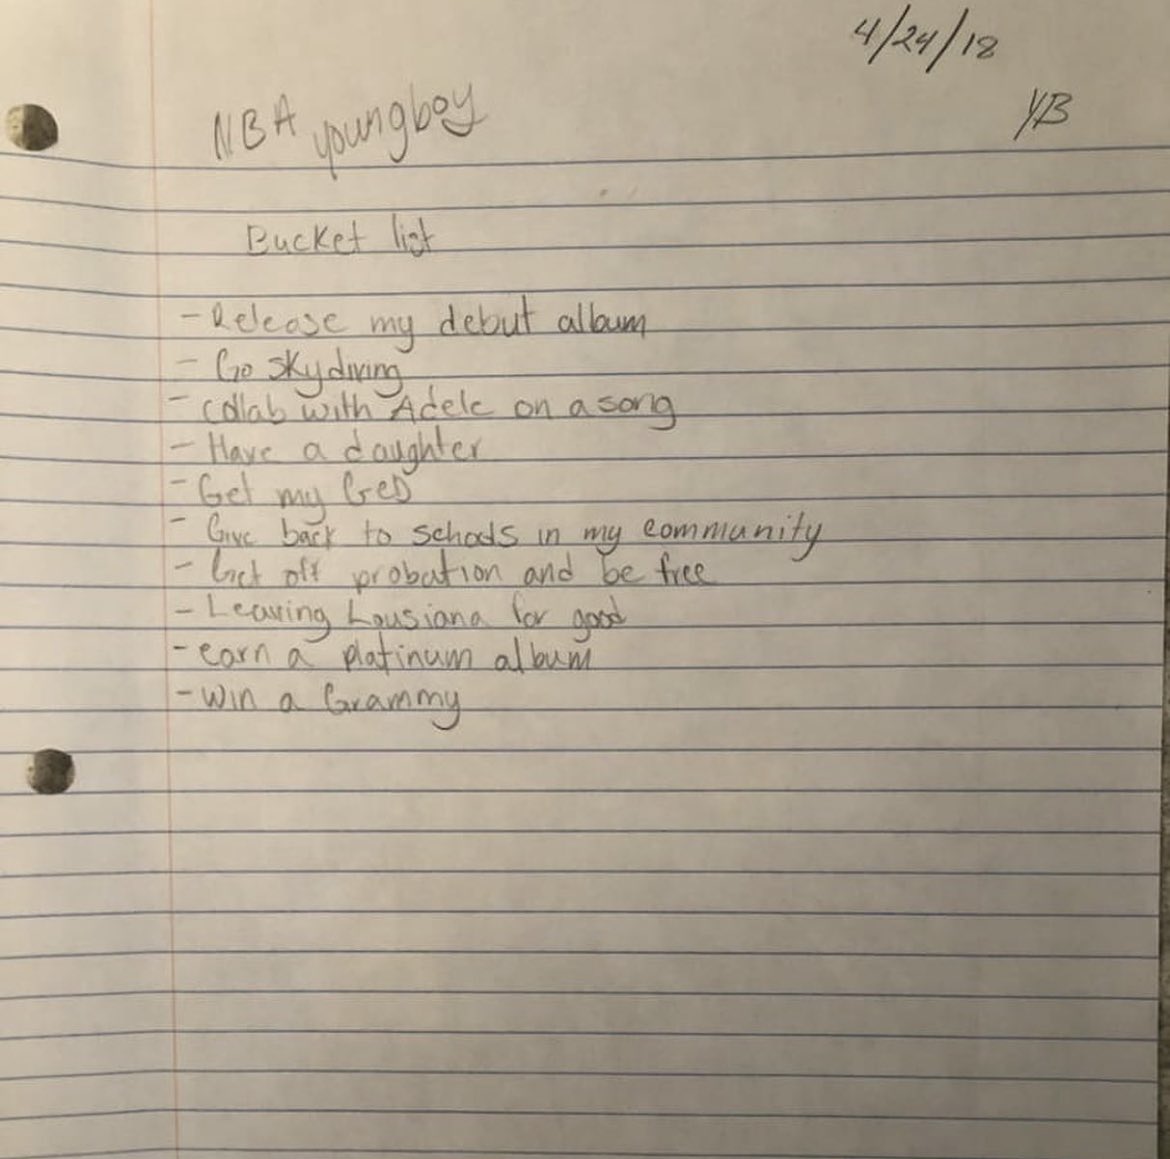 4/24/18
YB
NBA youngboy
Bucket list
- Release my debut album
- Go skydiving
- collab with Adele on a song
- Have a daughter
- Get my GeD
- Give back to schools in my community
- Get off probation and be free
- Leaving Lousiana for good
- earn a platinum album
- win a Grammy